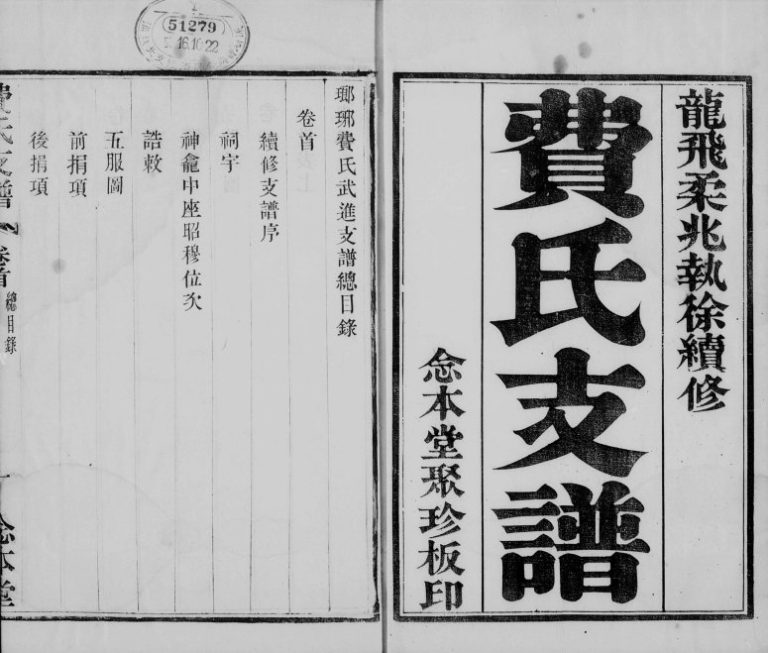 龍飛柔兆執徐續修
費氏支譜
念本堂聚珍板印
51279
16.10.22
瑯琊費氏武進支譜總目錄
卷首
續修支譜序
祠宇
神龕中座昭穆位次
誥敕
五服圖
前捐項
後捐項
費氏支譜
卷首
總目錄
念本堂